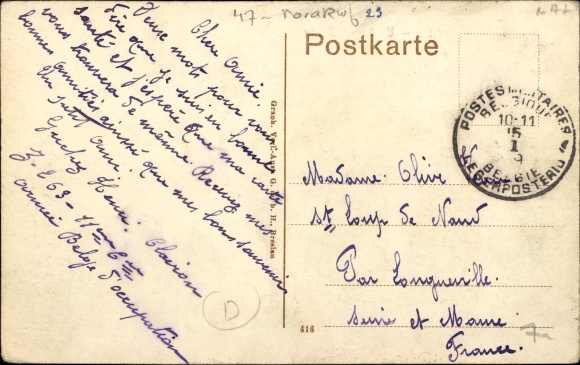 47 - Norakwf 23
Postkarte
Chère Amie.
Deux mots pour vous
dire que je suis en bonne
santé et j'espère que ma carte
vous trouvera de même Recevez mes
bonnes amitiés ainsi que mes bons souvenirs
Un petit ami.
Clairon
armée Belge d'occupation
Graph. Verl.-Anst. G. m. b. H., Breslau
416
D
POSTES MILITAIRES
BELGIQUE
10-11
5
I
9
BELGIE
LEGERPOSTERIJ
Madame Olive
St Loup de Naud
Par Longueville.
Seine et Marne
France.